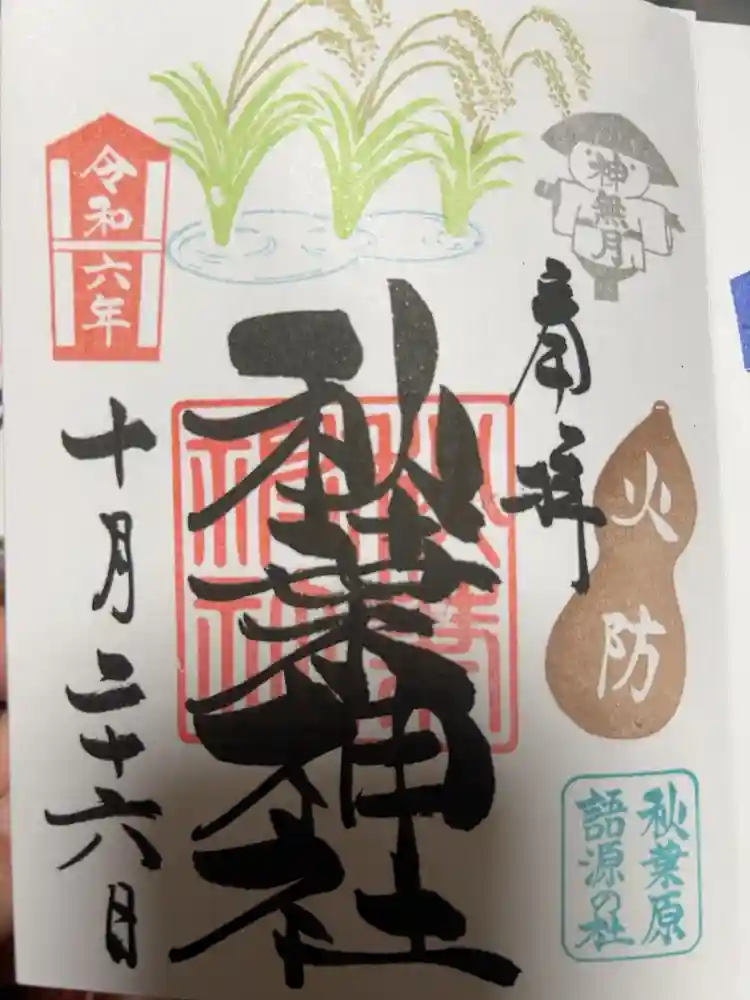 神無月
奉拝
火防
秋葉原
語源の社
秋葉神社
令和
六年
十月二十六日